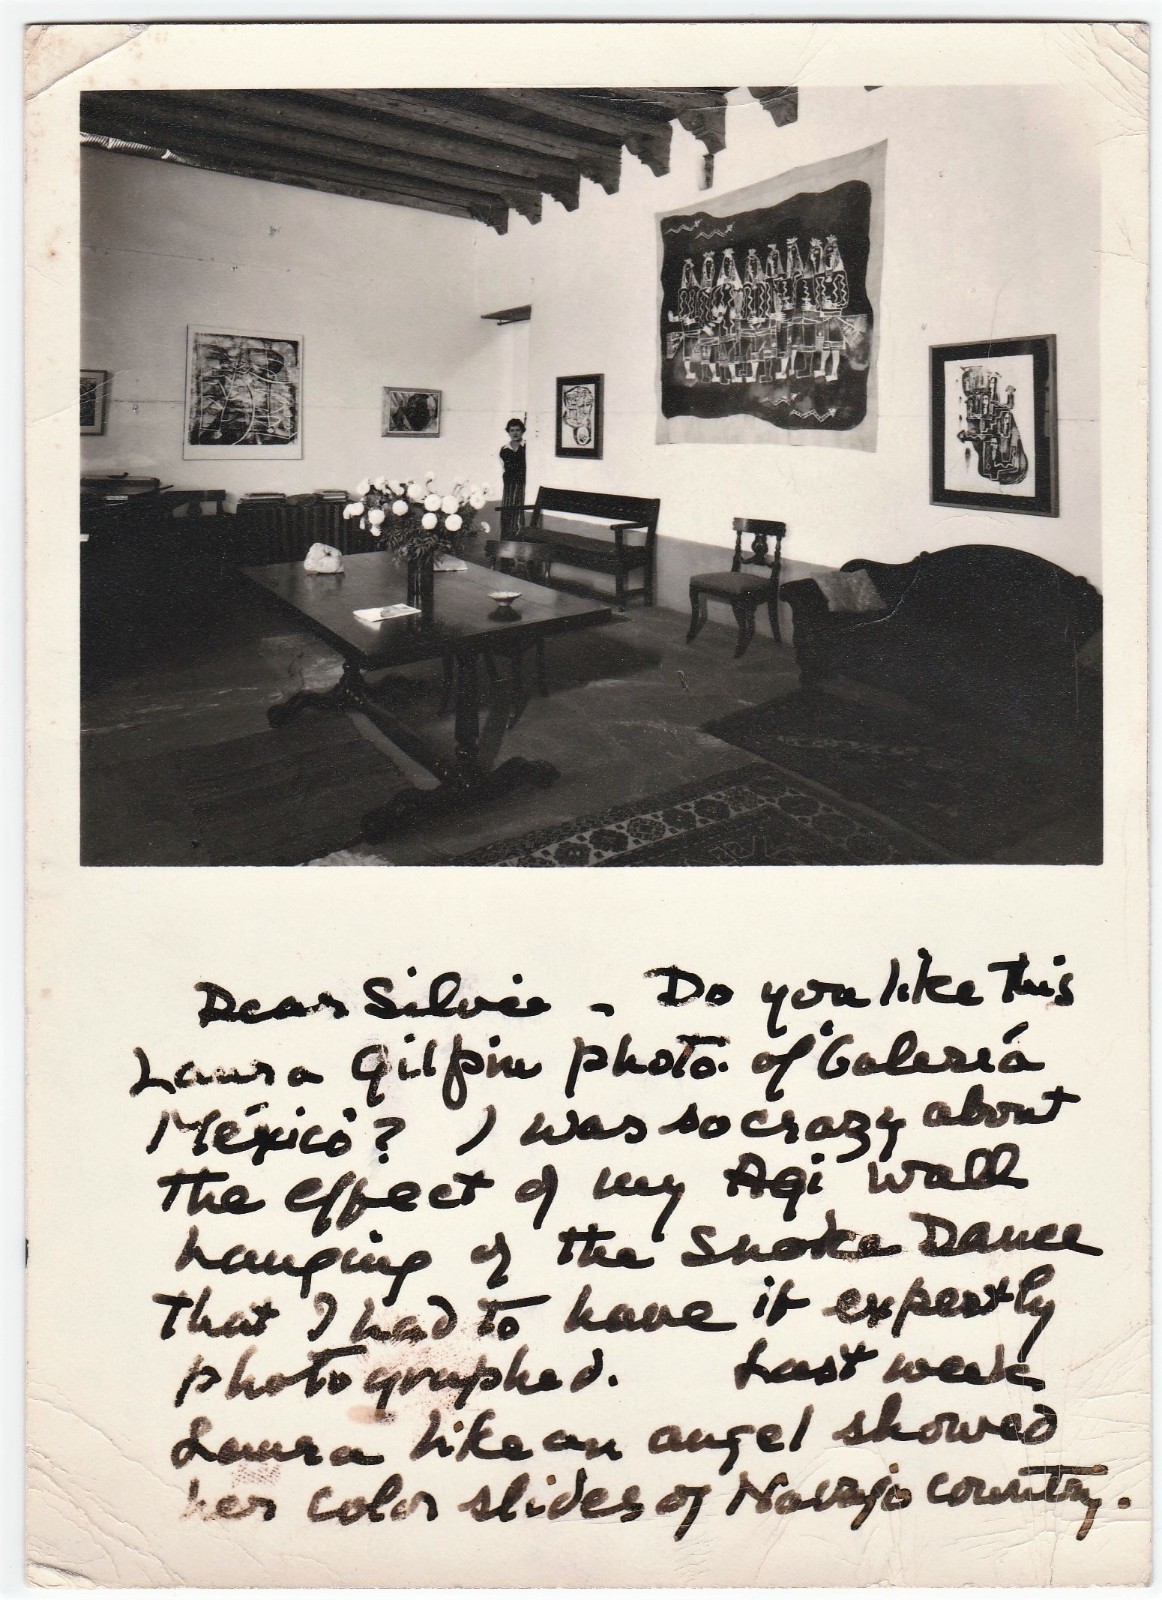 Dear Silvie - Do you like this
Laura Gilpin photo. of "Galería
México"? I was so crazy about
the effect of my Agi wall
hanging of the Snake Dance
that I had to have it expertly
photographed. Last week
Laura like an angel showed
her color slides of Navajo country.